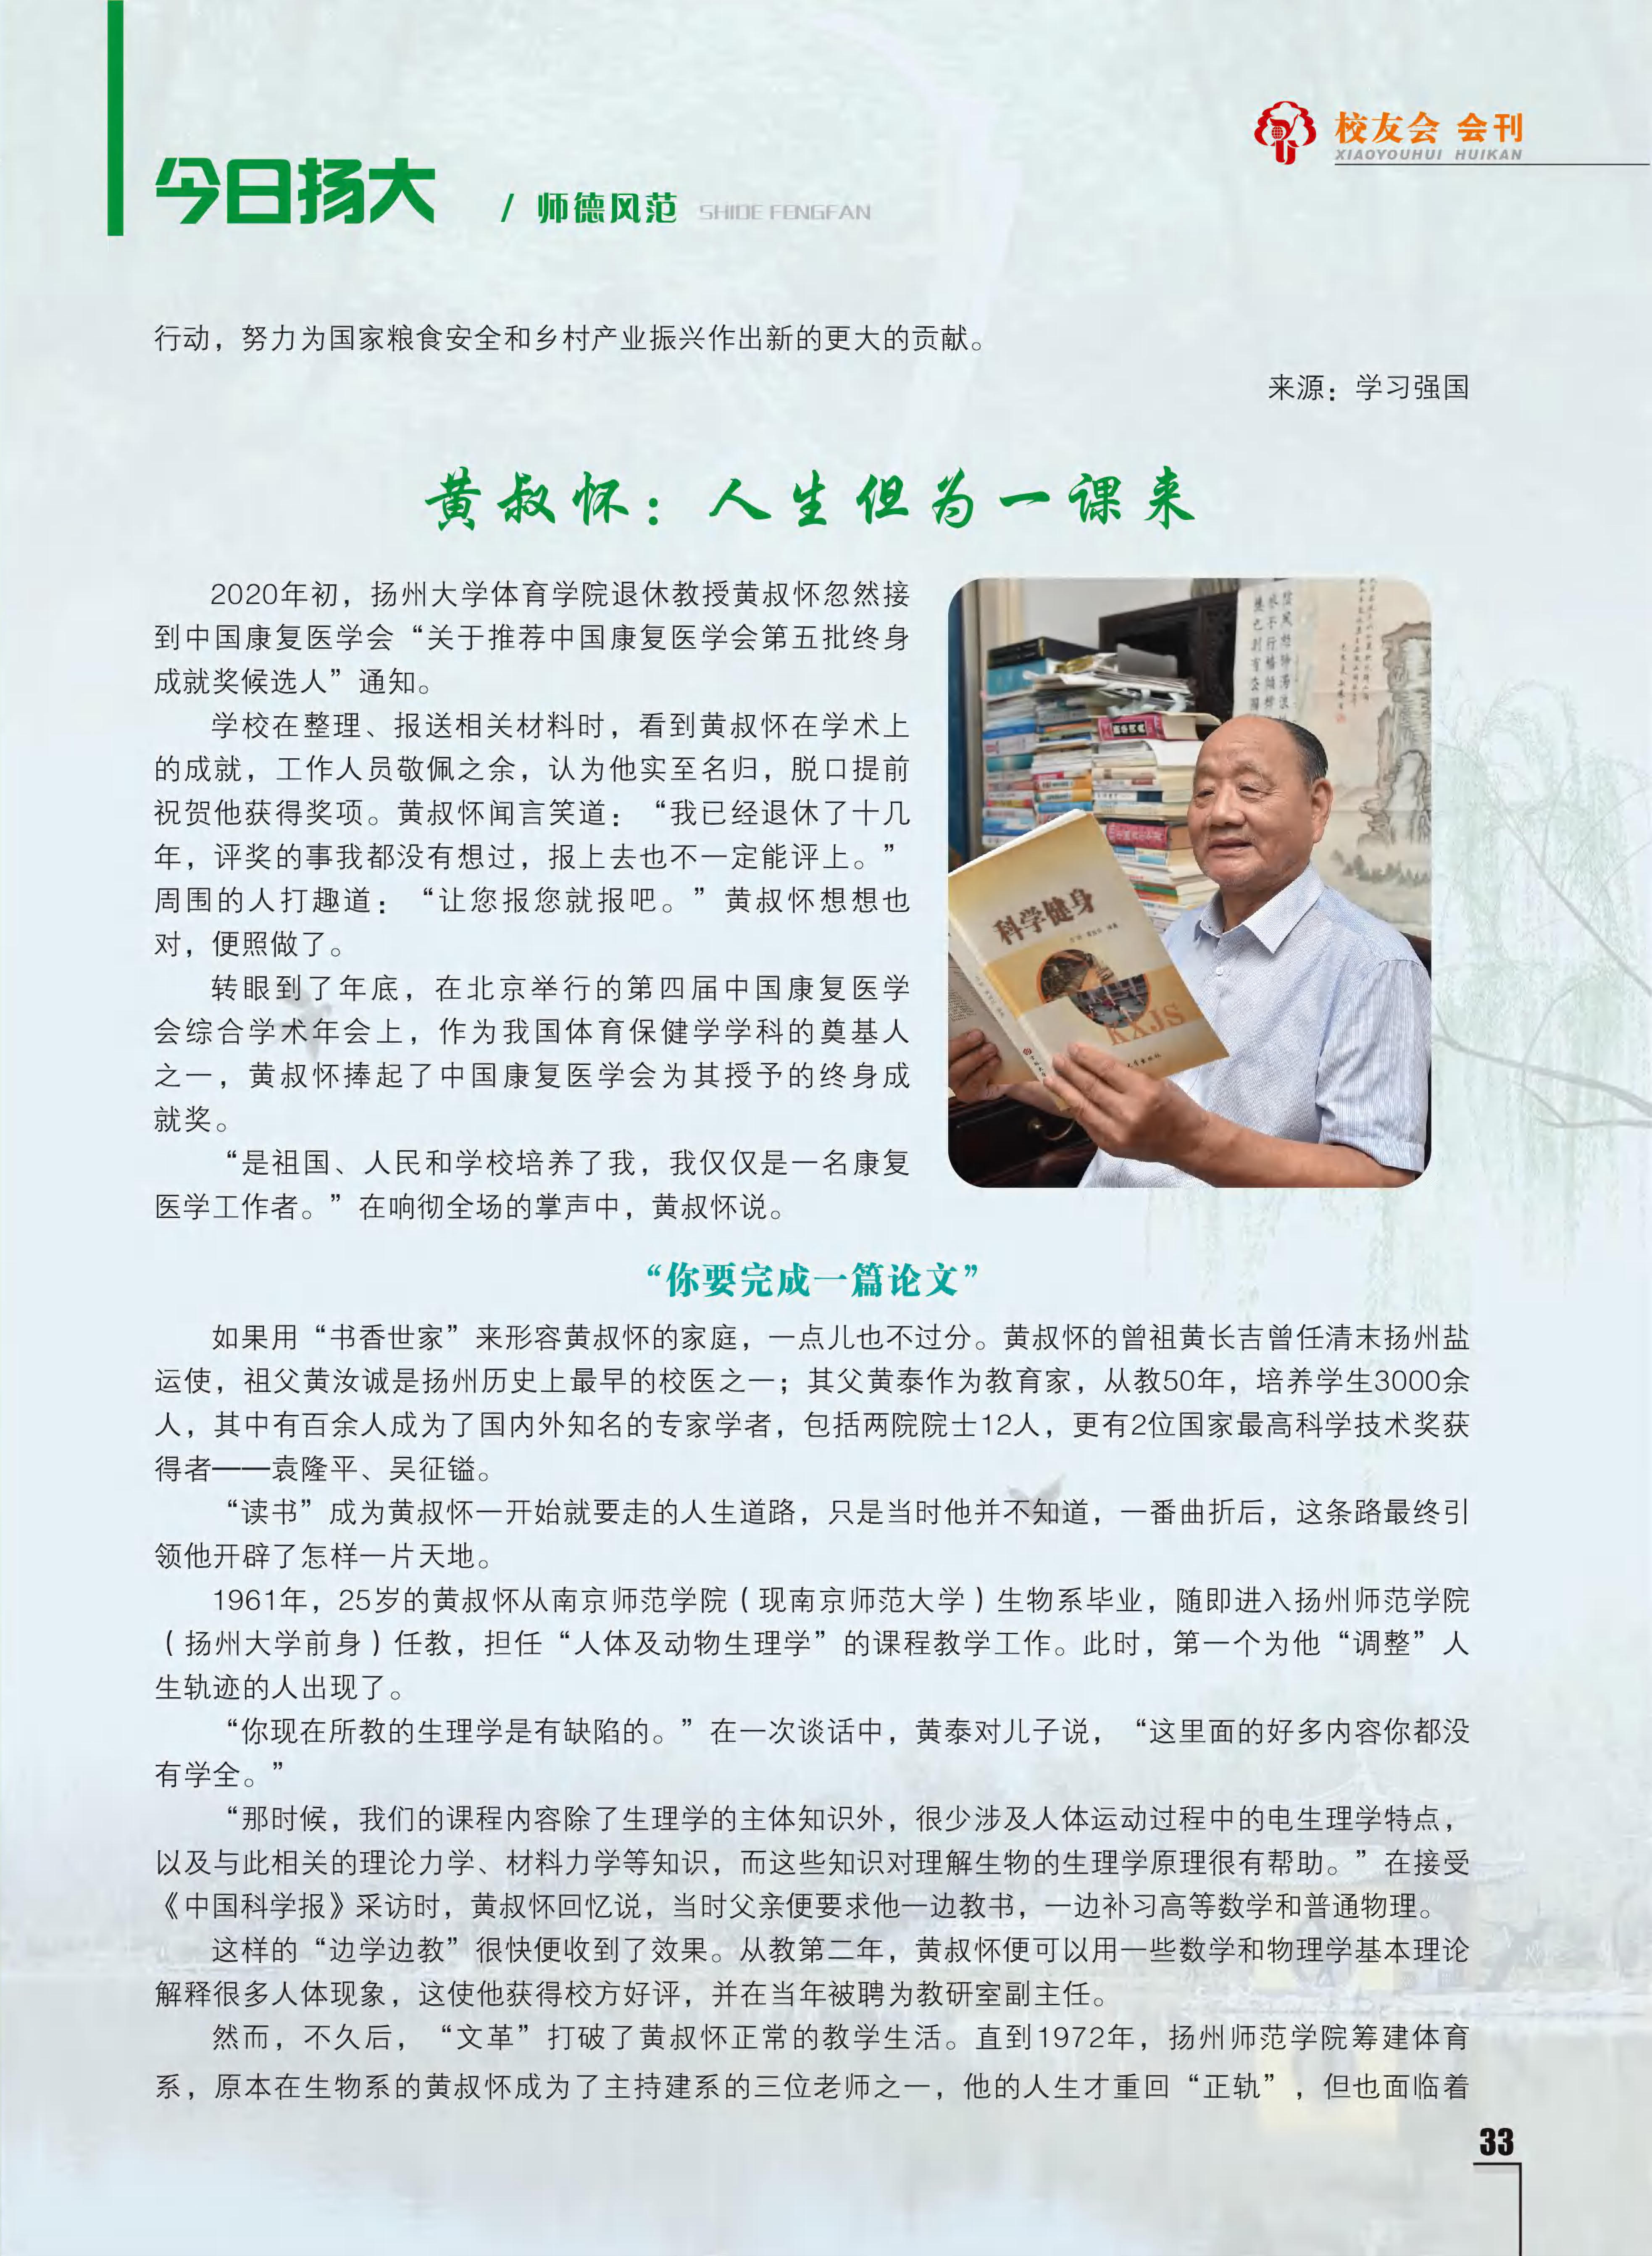 今日扬大 / 师德风范 SHIDE FENGFAN
校友会 会刊
XIAOYOUHUI HUIKAN
行动，努力为国家粮食安全和乡村产业振兴作出新的更大的贡献。
来源：学习强国
黄叔怀：人生但为一课来
2020年初，扬州大学体育学院退休教授黄叔怀忽然接
到中国康复医学会“关于推荐中国康复医学会第五批终身
成就奖候选人”通知。
学校在整理、报送相关材料时，看到黄叔怀在学术上
的成就，工作人员敬佩之余，认为他实至名归，脱口提前
祝贺他获得奖项。黄叔怀闻言笑道：“我已经退休了十几
年，评奖的事我都没有想过，报上去也不一定能评上。”
周围的人打趣道：“让您报您就报吧。”黄叔怀想想也
对，便照做了。
转眼到了年底，在北京举行的第四届中国康复医学
会综合学术年会上，作为我国体育保健学学科的奠基人
之一，黄叔怀捧起了中国康复医学会为其授予的终身成
就奖。
“是祖国、人民和学校培养了我，我仅仅是一名康复
医学工作者。”在响彻全场的掌声中，黄叔怀说。
科学健身
KXJS
“你要完成一篇论文”
如果用“书香世家”来形容黄叔怀的家庭，一点儿也不过分。黄叔怀的曾祖黄长吉曾任清末扬州盐
运使，祖父黄汝诚是扬州历史上最早的校医之一；其父黄泰作为教育家，从教50年，培养学生3000余
人，其中有百余人成为了国内外知名的专家学者，包括两院院士12人，更有2位国家最高科学技术奖获
得者——袁隆平、吴征镒。
“读书”成为黄叔怀一开始就要走的人生道路，只是当时他并不知道，一番曲折后，这条路最终引
领他开辟了怎样一片天地。
1961年，25岁的黄叔怀从南京师范学院（现南京师范大学）生物系毕业，随即进入扬州师范学院
（扬州大学前身）任教，担任“人体及动物生理学”的课程教学工作。此时，第一个为他“调整”人
生轨迹的人出现了。
“你现在所教的生理学是有缺陷的。”在一次谈话中，黄泰对儿子说，“这里面的好多内容你都没
有学全。”
“那时候，我们的课程内容除了生理学的主体知识外，很少涉及人体运动过程中的电生理学特点，
以及与此相关的理论力学、材料力学等知识，而这些知识对理解生物的生理学原理很有帮助。”在接受
《中国科学报》采访时，黄叔怀回忆说，当时父亲便要求他一边教书，一边补习高等数学和普通物理。
这样的“边学边教”很快便收到了效果。从教第二年，黄叔怀便可以用一些数学和物理学基本理论
解释很多人体现象，这使他获得校方好评，并在当年被聘为教研室副主任。
然而，不久后，“文革”打破了黄叔怀正常的教学生活。直到1972年，扬州师范学院筹建体育
系，原本在生物系的黄叔怀成为了主持建系的三位老师之一，他的人生才重回“正轨”，但也面临着
33